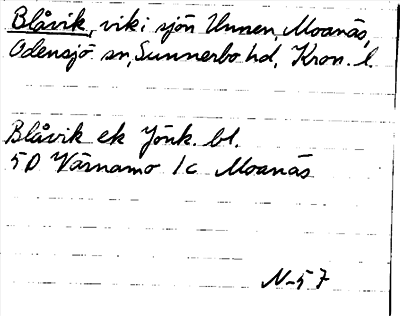 Blåvik, vik i sjön Unnen, Moanäs,
Odensjö sn, Sunnerbo hd, Kron. l.
Blåvik ek Jönk. bl.
5D Värnamo 1c Moanäs
N-57